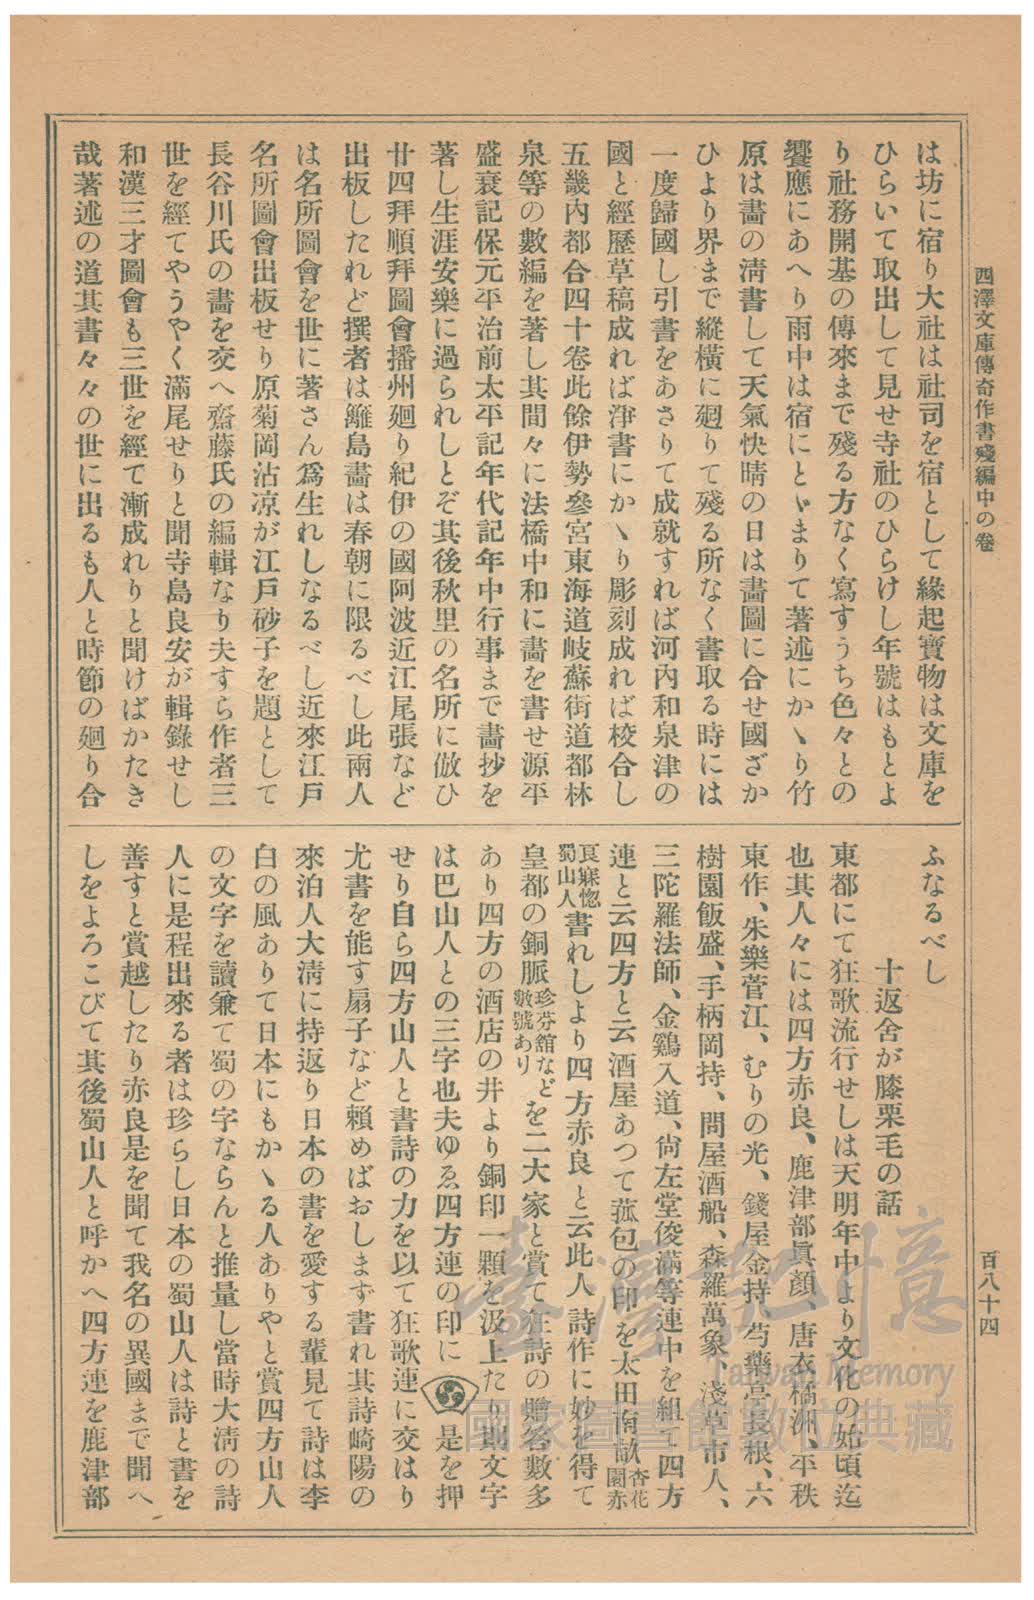 西澤文庫傳奇作書殘編中の卷
百八十四
は坊に宿り大社は社司を宿として緣起寶物は文庫を
ひらいて取出して見せ寺社のひらけし年號はもとよ
り社務開基の傳來まで殘る方なく寫すうち色々との
饗應にあへり雨中は宿にとゞまりて著述にかゝり竹
原は畵の淸書して天氣快晴の日は畵圖に合せ國ざか
ひより界まで縱橫に廻りて殘る所なく書取る時には
一度歸國し引書をあさりて成就すれば河內和泉津の
國と經歷草稿成れば淨書にかゝり彫刻成れば校合し
五畿內都合四十卷此餘伊勢參宮東海道岐蘇街道都林
泉等の數編を著し其間々に法橋中和に畵を書せ源平
盛衰記保元平治前太平記年代記年中行事まで畵抄を
著し生涯安樂に過られしとぞ其後秋里の名所に倣ひ
廿四拜順拜圖會播州廻り紀伊の國阿波近江尾張など
出板したれど撰者は籬島畵は春朝に限るべし此兩人
は名所圖會を世に著さん爲生れしなるべし近來江戶
名所圖會出板せり原菊岡沾凉が江戶砂子を題として
長谷川氏の畵を交へ齋藤氏の編輯なり夫すら作者三
世を經てやうやく滿尾せりと聞寺島良安が輯錄せし
和漢三才圖會も三世を經て漸成れりと聞けばかたき
哉著述の道其書々々の世に出るも人と時節の廻り合
ふなるべし
十返舍が膝栗毛の話
東都にて狂歌流行せしは天明年中より文化の始頃迄
也其人々には四方赤良、鹿津部眞顏、唐衣橘洲、平秩
東作、朱樂菅江、むりの光、錢屋金持、芍藥亭長根、六
樹園飯盛、手柄岡持、問屋酒船、森羅萬象、淺草市人、
三陀羅法師、金鷄入道、尙左堂俊滿等連中を組て四方
連と云四方と云酒屋あつて菰包の印を太田南畝杏花園赤
良寐惚蜀山人書れしより四方赤良と云此人詩作に妙を得て
皇都の銅脈珍芬館など數號ありを二大家と賞て狂詩の贈答數多
あり四方の酒店の井より銅印一顆を汲上たり則文字
は巴山人との三字也夫ゆゑ四方連の印に是を押
せり自ら四方山人と書詩の力を以て狂歌連に交はり
尤書を能す扇子など賴めばおしまず書れ其詩崎陽の
來泊人大淸に持返り日本の書を愛する輩見て詩は李
白の風ありて日本にもかゝる人ありやと賞四方山人
の文字を讀兼て蜀の字ならんと推量し當時大淸の詩
人に是程出來る者は珍らし日本の蜀山人は詩と書を
善すと賞越したり赤良是を聞て我名の異國まで聞へ
しをよろこびて其後蜀山人と呼かへ四方連を鹿津部
臺灣記憶
Taiwan Memory
國家圖書館數位典藏